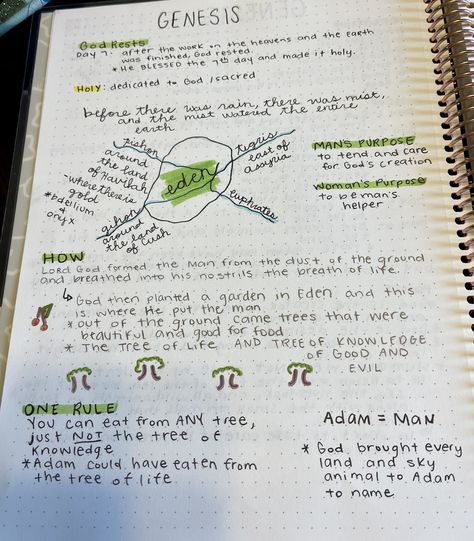 GENESIS
God Rests
Day 7: after the work on the heavens and the Earth
was finished, God rested.
* He BLESSED the 7th day and made it holy.
Holy: dedicated to God / sacred
before there was rain, there was mist,
and the mist watered the entire
earth
Pishon
around
the land
of Havilah
- where there is
gold
* bdellium
+
onyx
tigris
east of
assyria
eden
gihon
around
the land
of Cush
euphrates
MANS PURPOSE
to tend and care
for God's creation
Woman's Purpose
to be man's
helper
HOW
LORD God formed the man from the dust of the ground
and breathed into his nostrils the breath of life.
↳ God then planted a garden in Eden and this
is where He put the man
* out of the ground came trees that were
beautiful and good for food
* The Tree of Life AND TREE OF KNOWLEDGE
OF GOOD AND
EVIL
ONE RULE
You can eat from ANY tree,
just NOT the tree of
knowledge
* Adam could have eaten from
the tree of life
Adam = Man
* God brought every
land and sky
animal to Adam
to name